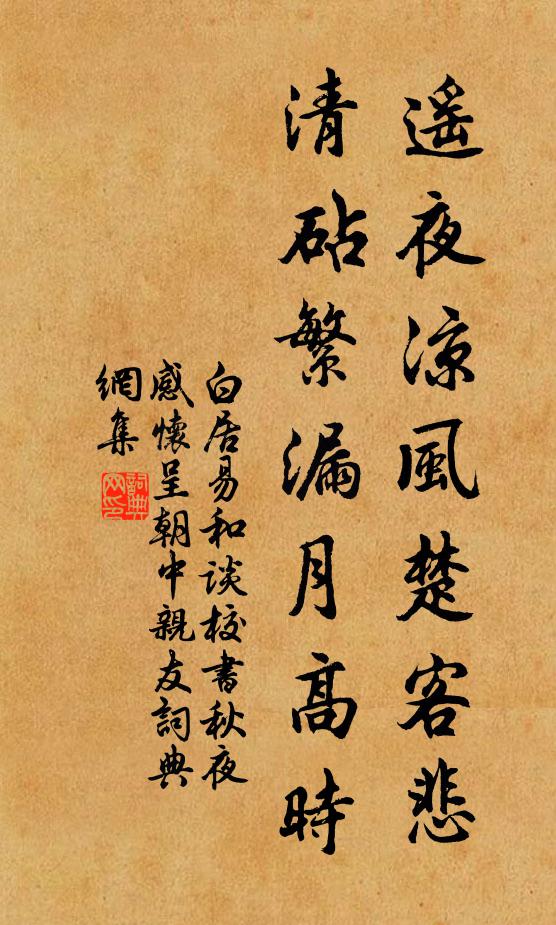 遥夜凉風楚客悲
清砧繁漏月高時
白居易和谈校書秋夜
感懷呈朝中親友詞典
網集
詞典
网印